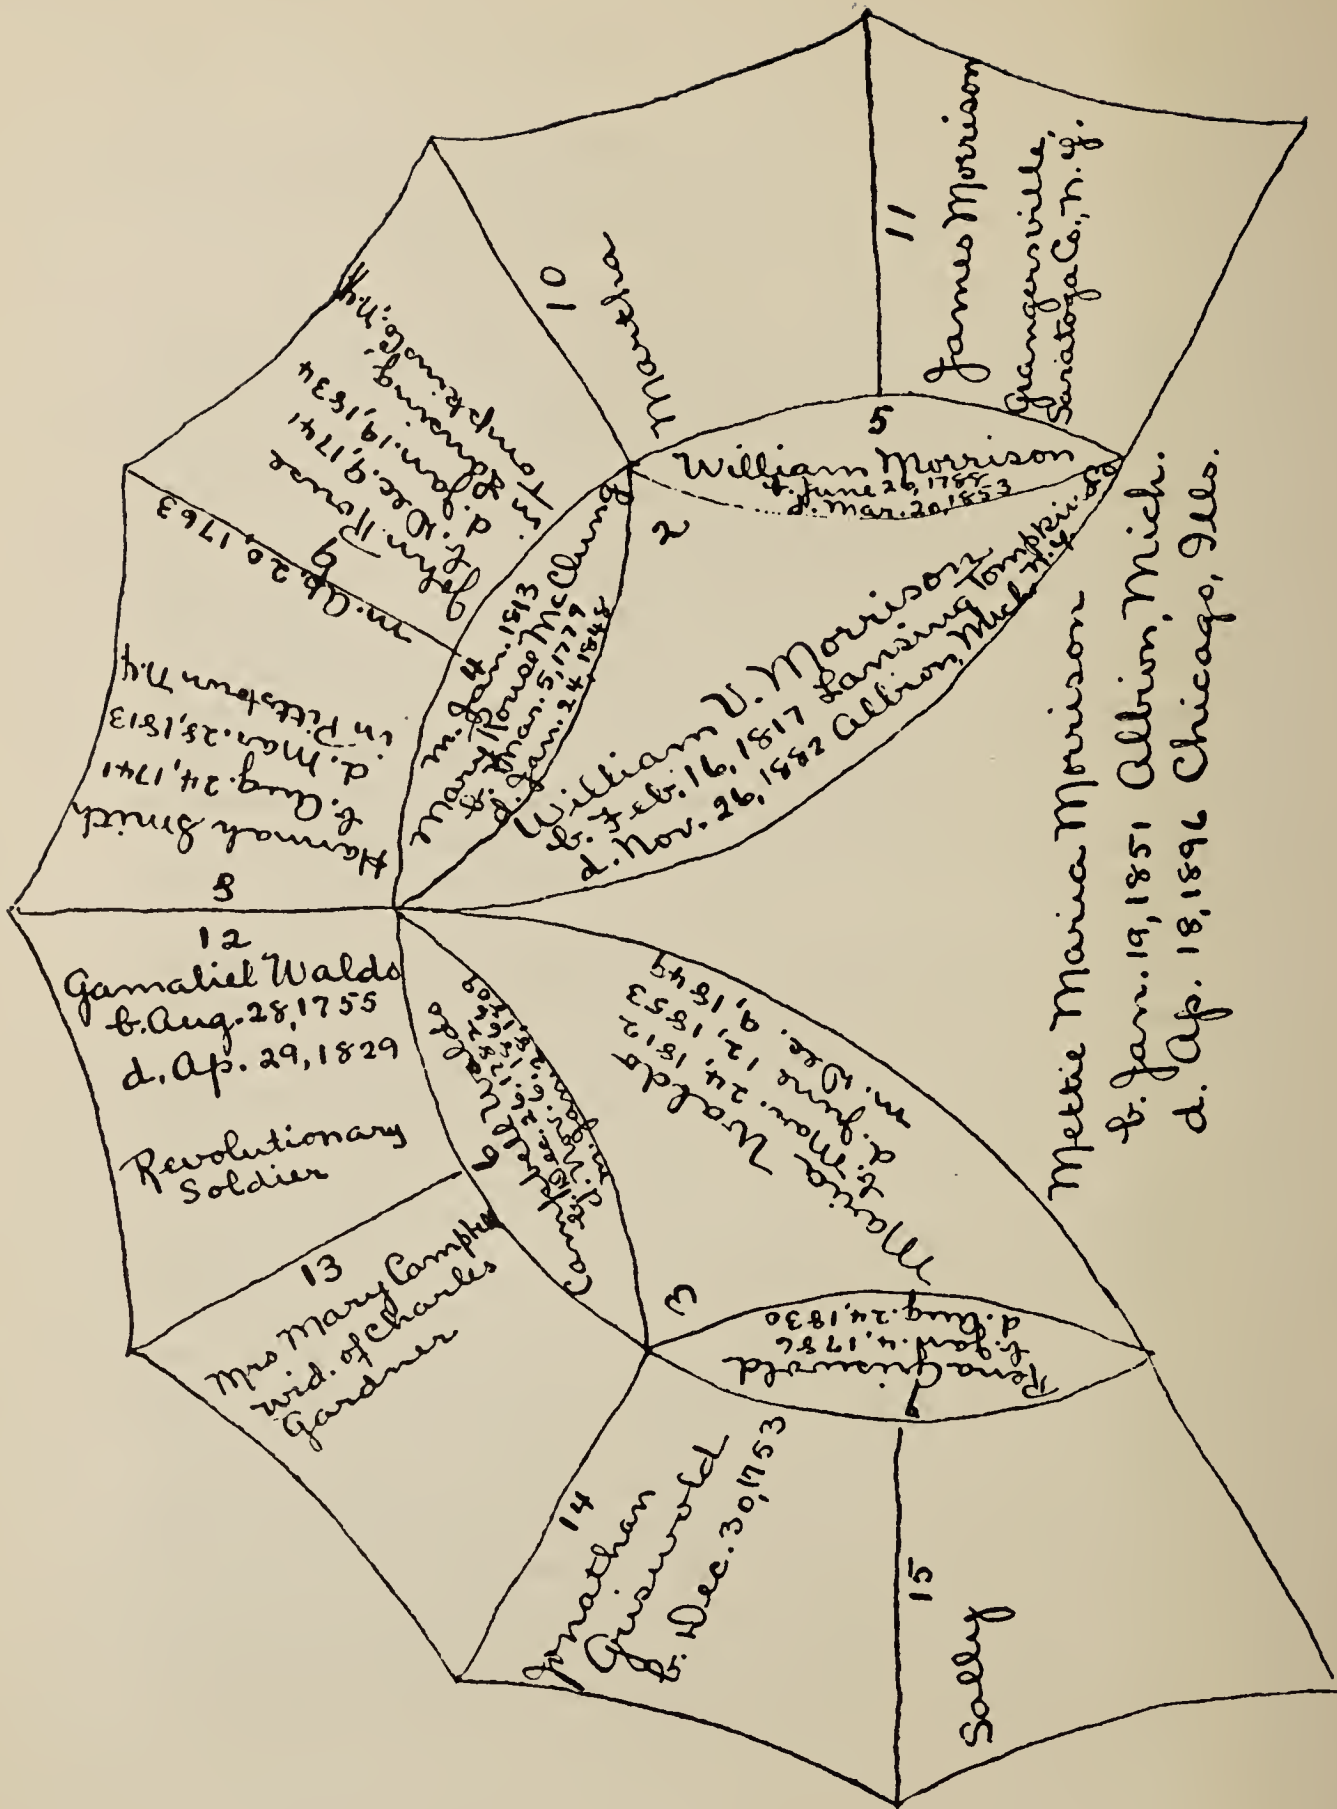 Mettie Maria Morrison
b. Jan. 19, 1851 Albion, Mich.
d. Ap. 18, 1896 Chicago, Ills.
2
William V. Morrison
b. Feb. 16, 1817 Lansing Tompkins Co
d. Nov. 26, 1882 Albion, Mich. N.Y.
3
Maria Waldo
b. Mar. 24, 1812
d. June 12, 1853
m. Dec. 9, 1849
4
m. Jan. 1813
Mary Rouse McClung
b. Mar. 5, 1779
d. Jan. 24, 1848
5
William Morrison
b. June 26, 1788
d. Mar. 20, 1853
6
Campbell Waldo
b. Dec. 26, 1782
d. Nov. 6,
m. Jan. 28, 1809
7
Rena Griswold
b. Jan. 4, 1786
d. Aug. 24, 1830
8
Hannah Smith
b. Aug. 24, 1741
d. Mar. 28, 1813
in Pittstown N.Y
m. Ap. 20, 1763
9
John Rouse
b. Dec. 9, 1741
d. Jan. 19, 1834
in Lansing,
Tompkins Co., N.Y
10
Martha
11
James Morrison
Grangersville,
Saratoga Co., N.Y.
12
Gamaliel Waldo
b. Aug. 28, 1755
d. Ap. 29, 1829
Revolutionary
Soldier
13
Mrs Mary Campbell
wid. of Charles
Gardner
14
Jonathan
Griswold
b. Dec. 30, 1753
15
Sally